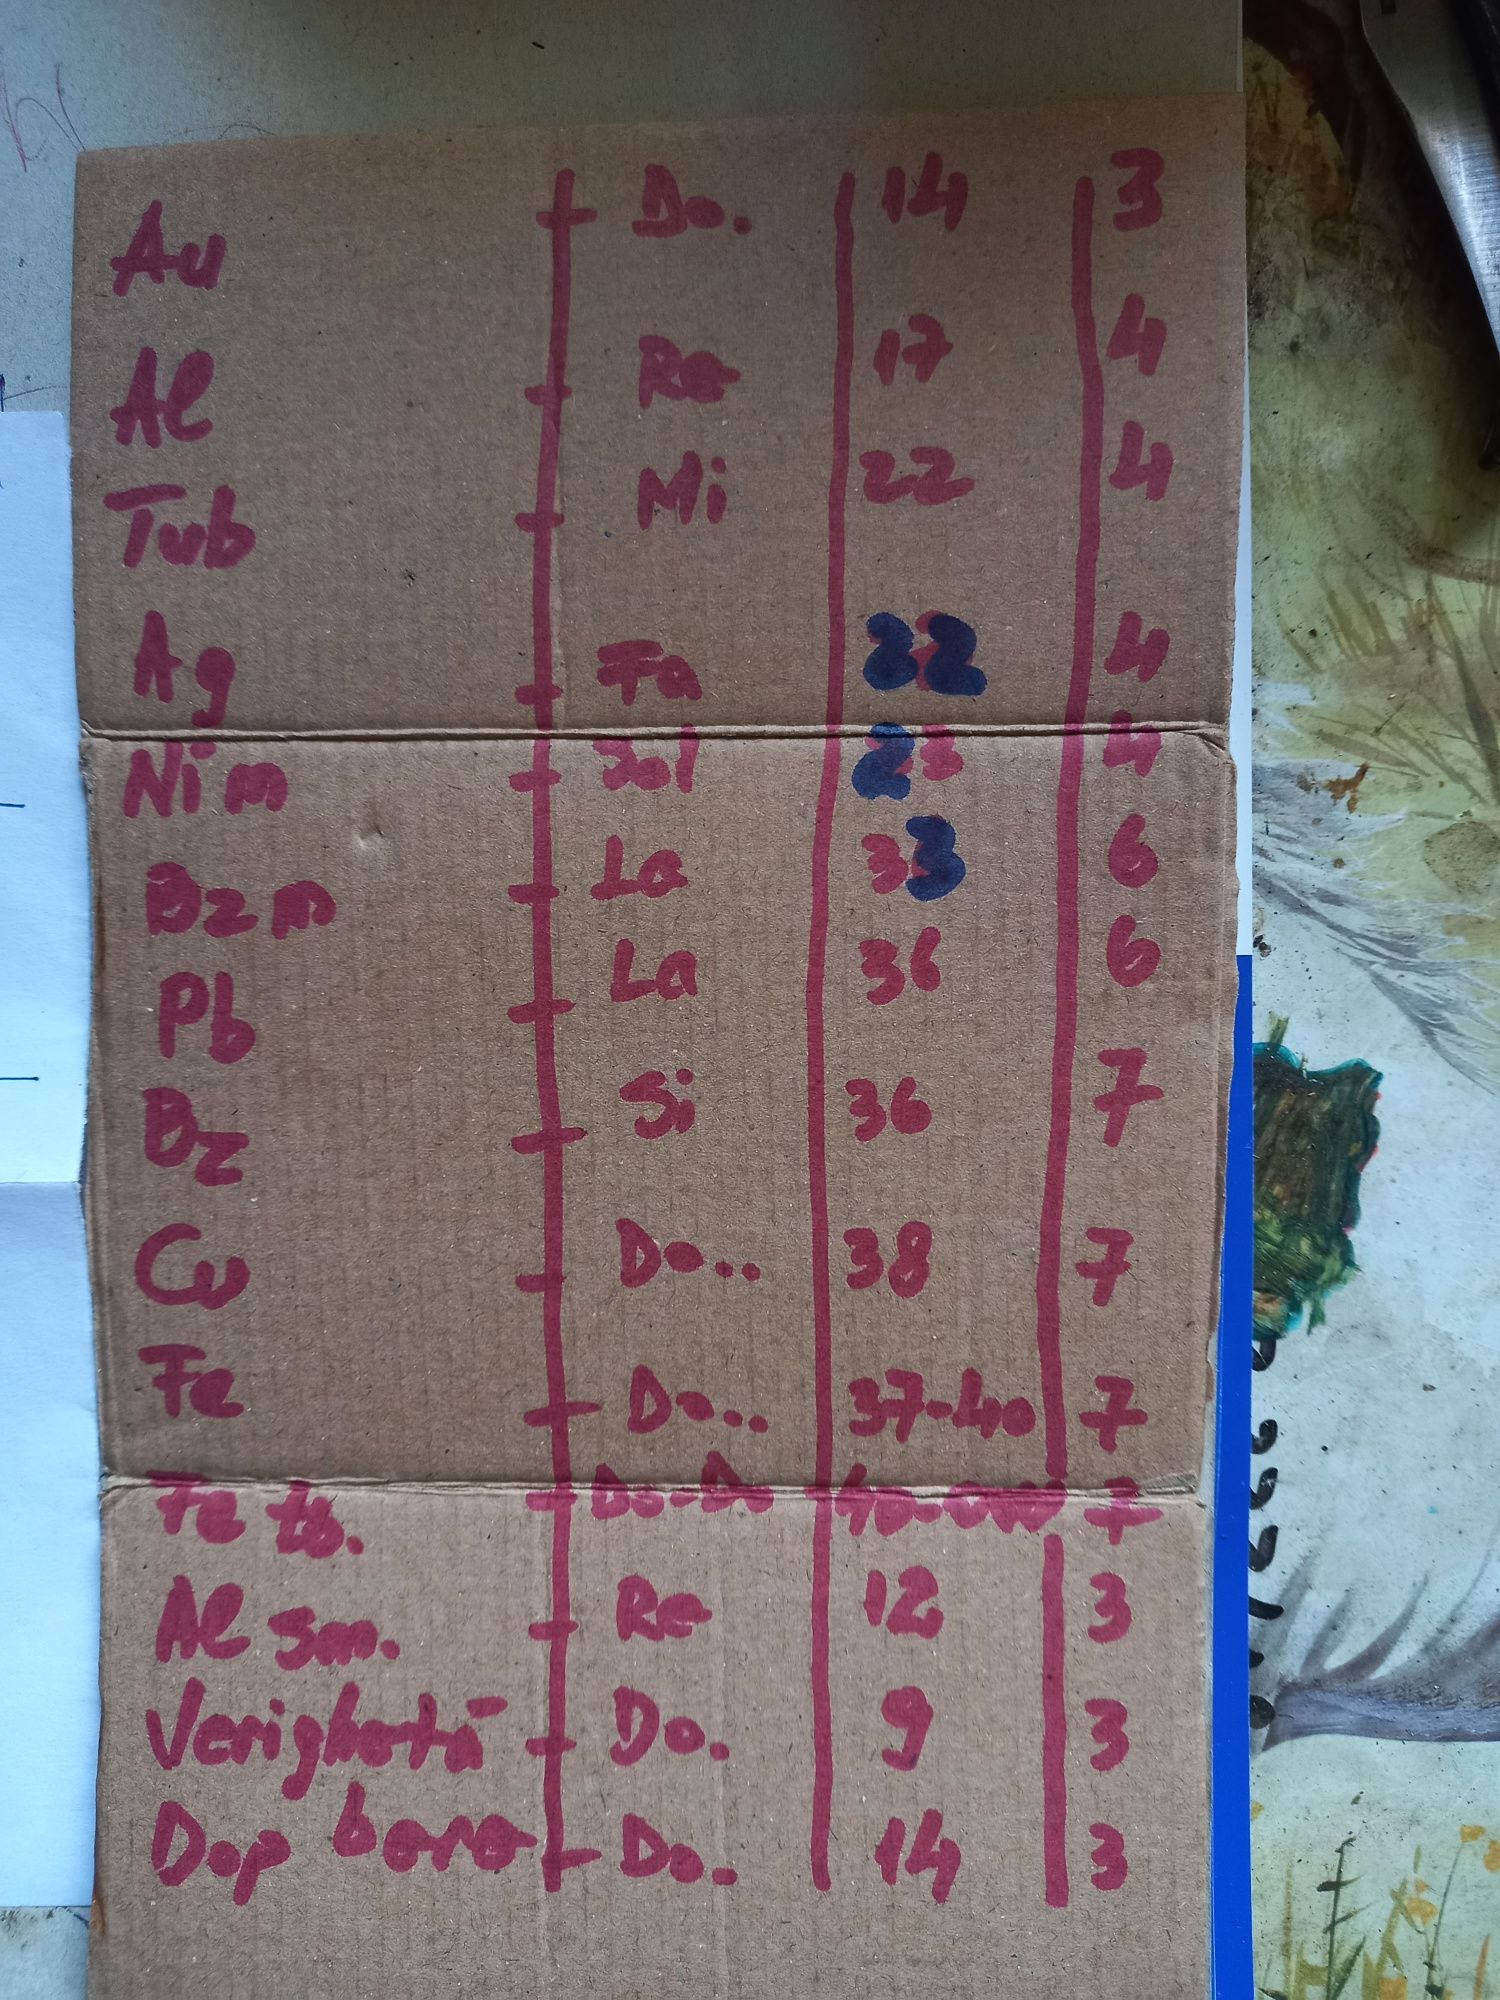 Au Do. 14 3
Al Re 17 4
Tub Mi 22 4
Ag Fa 22 4
Nim Sol 23 4
Bzm La 33 6
Pb La 36 6
Bz Si 36 7
Cu Do.. 38 7
Fe Do.. 37-40 7
Fe tb. Do-Do 7
Al sm. Re 12 3
Verighetă Do. 9 3
Dop bere Do. 14 3